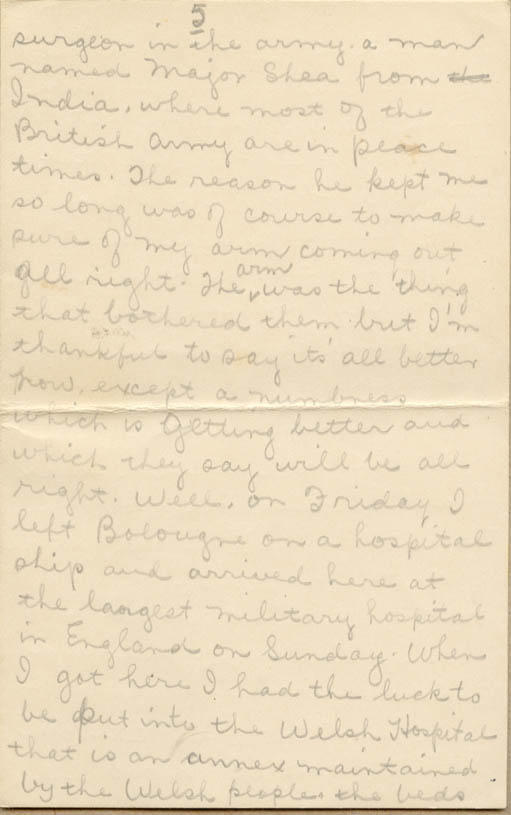 5
surgeon in the army. a man
named Major Shea from the
India, where most of the
British army are in peace
times. The reason he kept me
so long was of course to make
sure of my arm coming out
all right. The arm was the thing
that bothered them but I'm
thankful to say its all better
now, except a numbness
which is getting better and
which they say will be all
right. Well, on Friday I
left Bolougne on a hospital
ship and arrived here at
the largest military hospital
in England on Sunday. When
I got here I had the luck to
be put into the Welsh Hospital
that is an annex maintained
by the Welsh people. the beds